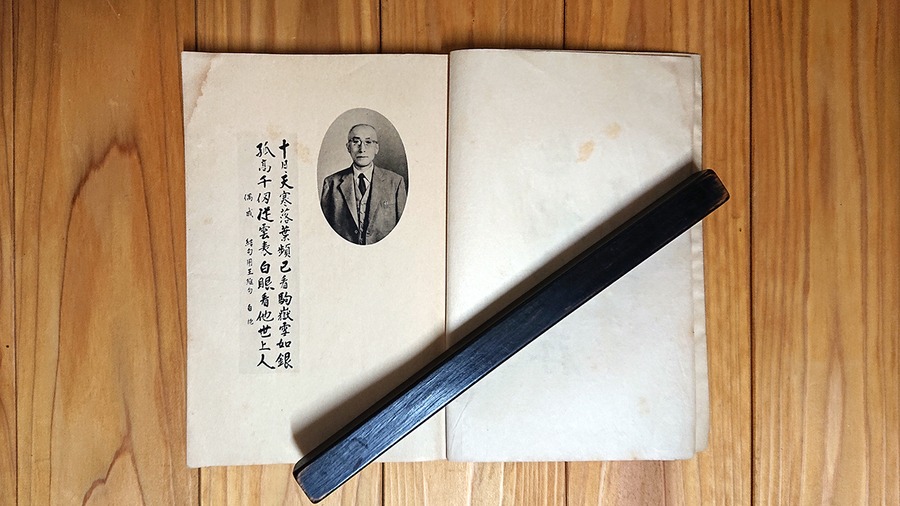 十月天寒落葉頻已看駒嶽雪如銀
孤高千仞從雲表白眼看他世上人
偶成 結句用王維句 自